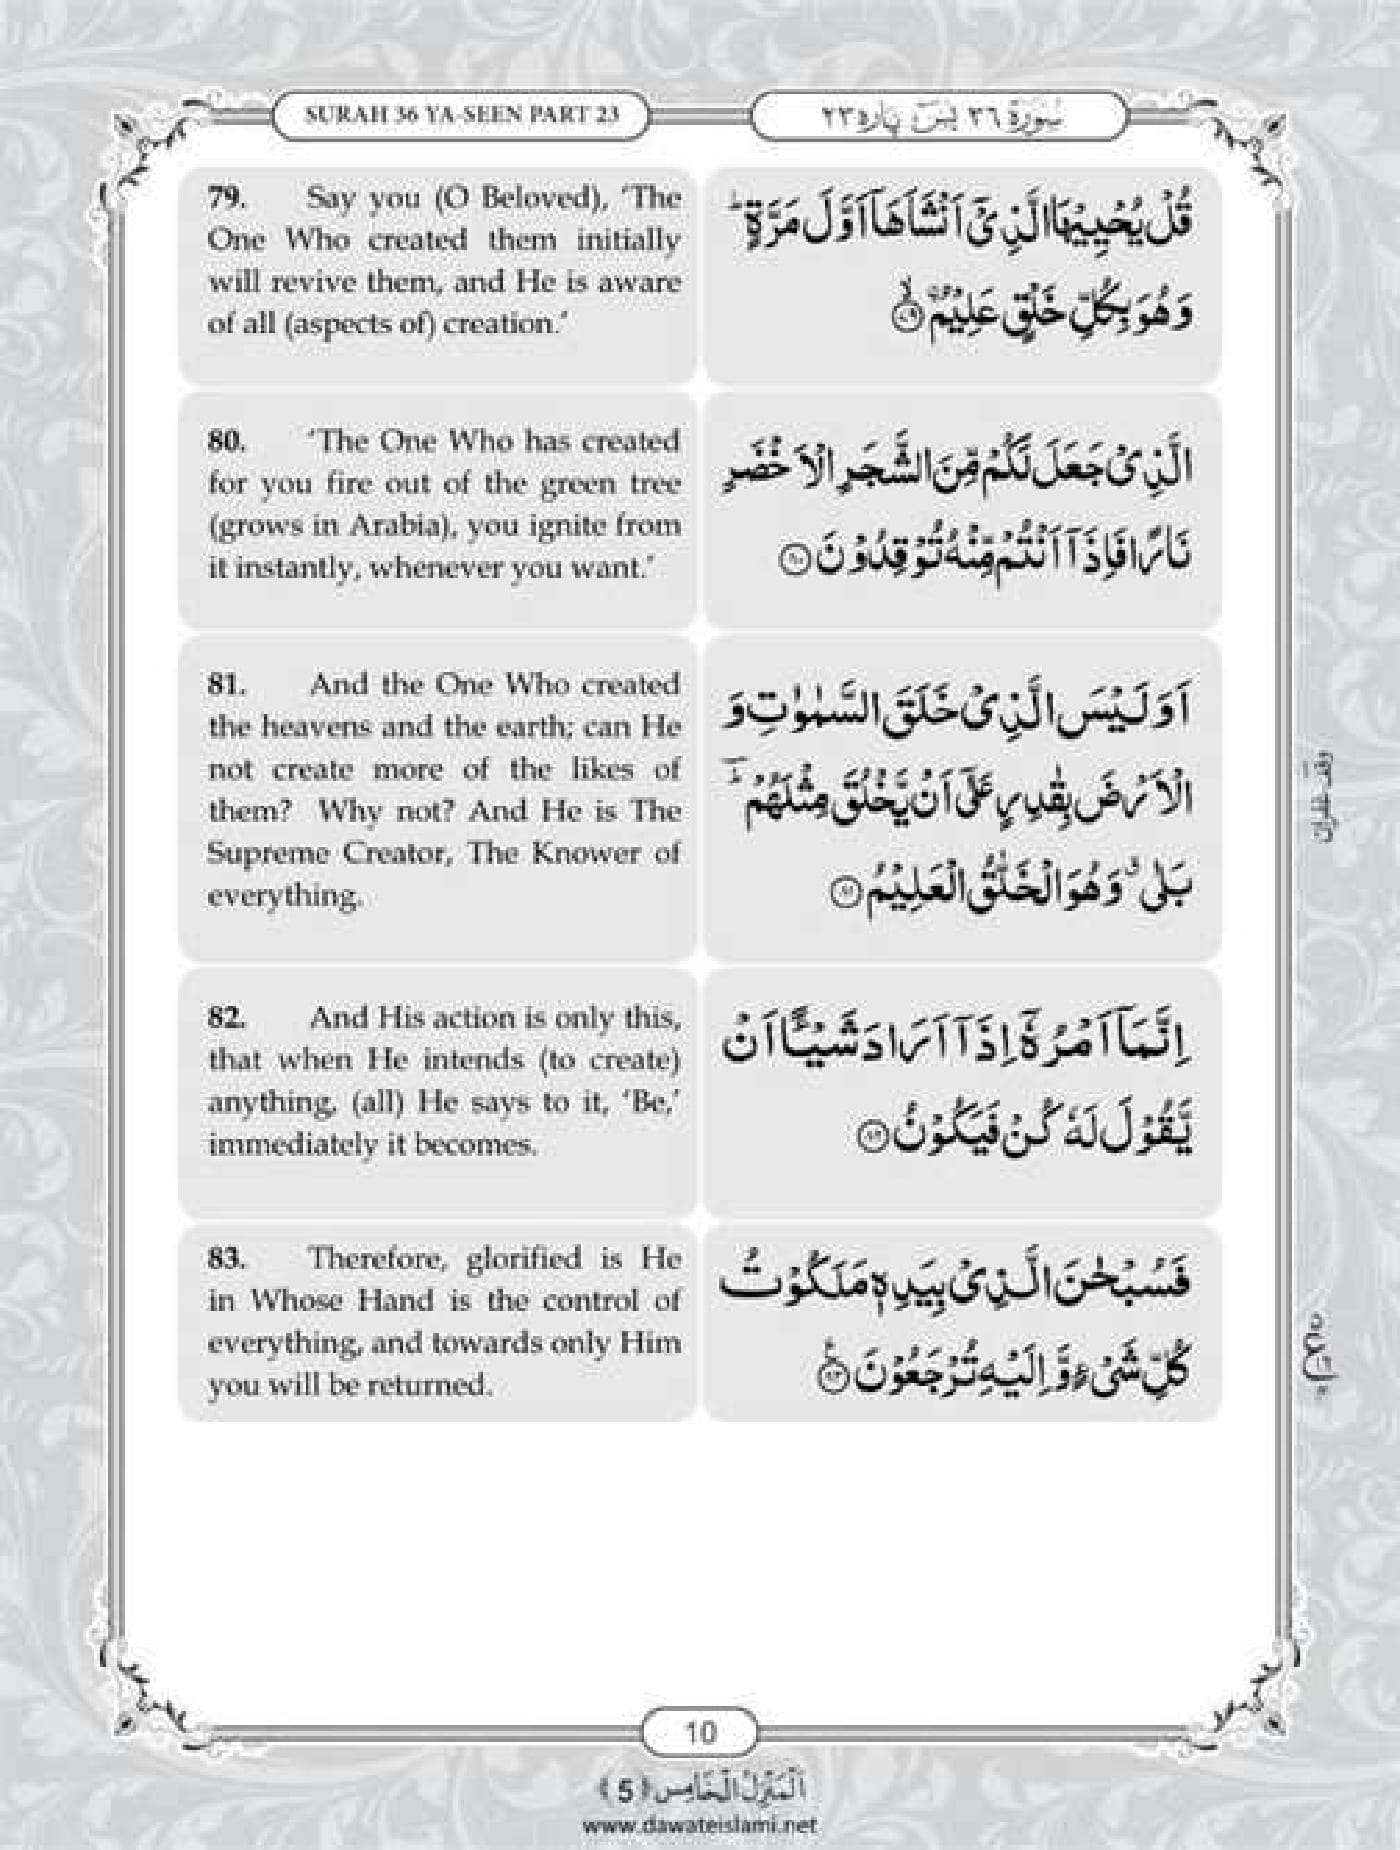 SURAH 36 YA-SEEN PART 23
سُوْرَة ٣٦ يٰسٓ پاره ٢٣
79. Say you (O Beloved), ‘The
One Who created them initially
will revive them, and He is aware
of all (aspects of) creation.’
قُلْ يُحْيِيْهَا الَّذِیْۤ اَنْشَاَهَاۤ اَوَّلَ مَرَّةٍ ؕ
وَهُوَ بِكُلِّ خَلْقٍ عَلِیْمُۨ ۙ﴿٧٩﴾
80. ‘The One Who has created
for you fire out of the green tree
(grows in Arabia), you ignite from
it instantly, whenever you want.’
الَّذِیْ جَعَلَ لَكُمْ مِّنَ الشَّجَرِ الْاَخْضَرِ
نَارًا فَاِذَاۤ اَنْتُمْ مِّنْهُ تُوْقِدُوْنَ ﴿٨٠﴾
81. And the One Who created
the heavens and the earth; can He
not create more of the likes of
them? Why not? And He is The
Supreme Creator, The Knower of
everything.
اَوَلَیْسَ الَّذِیْ خَلَقَ السَّمٰوٰتِ وَ
الْاَرْضَ بِقٰدِرٍ عَلٰۤی اَنْ یَّخْلُقَ مِثْلَهُمْ ؕؔ
بَلٰی ۗ وَهُوَ الْخَلّٰقُ الْعَلِیْمُ ﴿٨١﴾
82. And His action is only this,
that when He intends (to create)
anything, (all) He says to it, ‘Be,’
immediately it becomes.
اِنَّمَاۤ اَمْرُهٗۤ اِذَاۤ اَرَادَ شَیْـًٔا اَنْ
یَّقُوْلَ لَهٗ كُنْ فَیَكُوْنُ ﴿٨٢﴾
83. Therefore, glorified is He
in Whose Hand is the control of
everything, and towards only Him
you will be returned.
فَسُبْحٰنَ الَّذِیْ بِیَدِهٖ مَلَكُوْتُ
كُلِّ شَیْءٍ وَّ اِلَیْهِ تُرْجَعُوْنَ ﴿٨٣﴾
10
اَلْمَنْزِلُ الْخَامِس ﴿5﴾
www.dawateislami.net